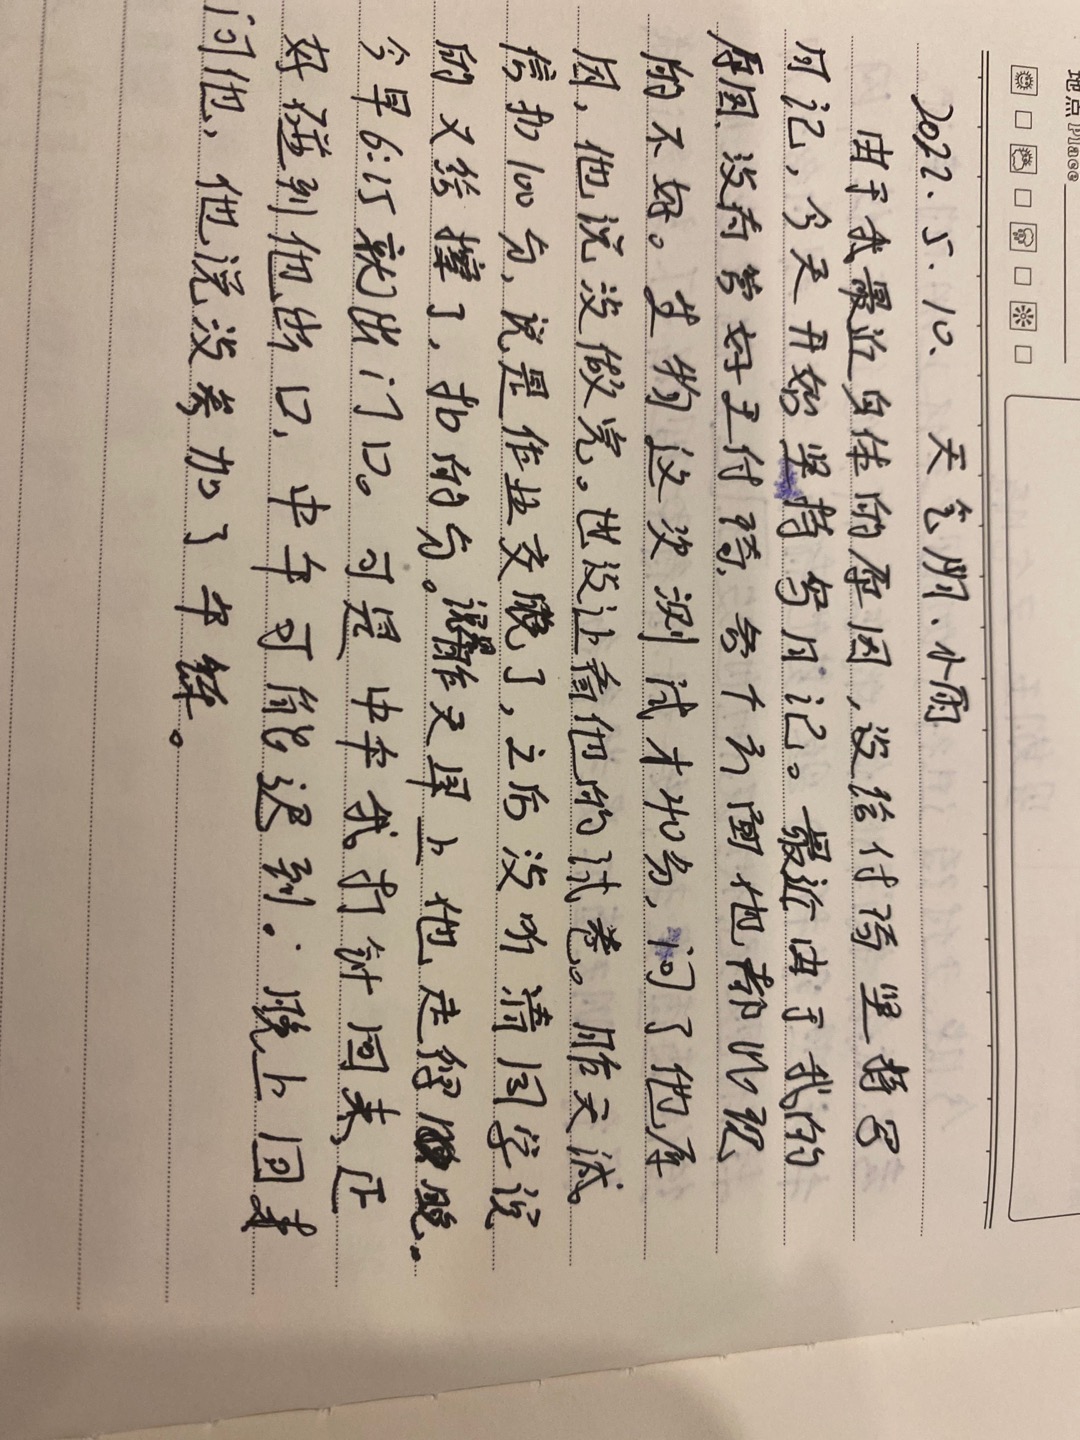 地点 Place
2022.5.10. 天气阴、小雨
由于我最近身体的原因，没给付琦坚持写
日记，今天开始坚持写日记。最近由于我的
原因没有管好王付琦，各个方面他都比较
的不好。生物这次测试才40多，问了他原
因，他说没做完。也没让看他的试卷。昨天试。
信扣100分，说是作业交晚了，之后没听清同学说
的又给撵了，扣的分。昨天早上他走得晚。
今早6:15就出门口。可是中午我打针回来，正
好碰到他出口，中午可能迟到。晚上回来
问他，他说没参加了午练。